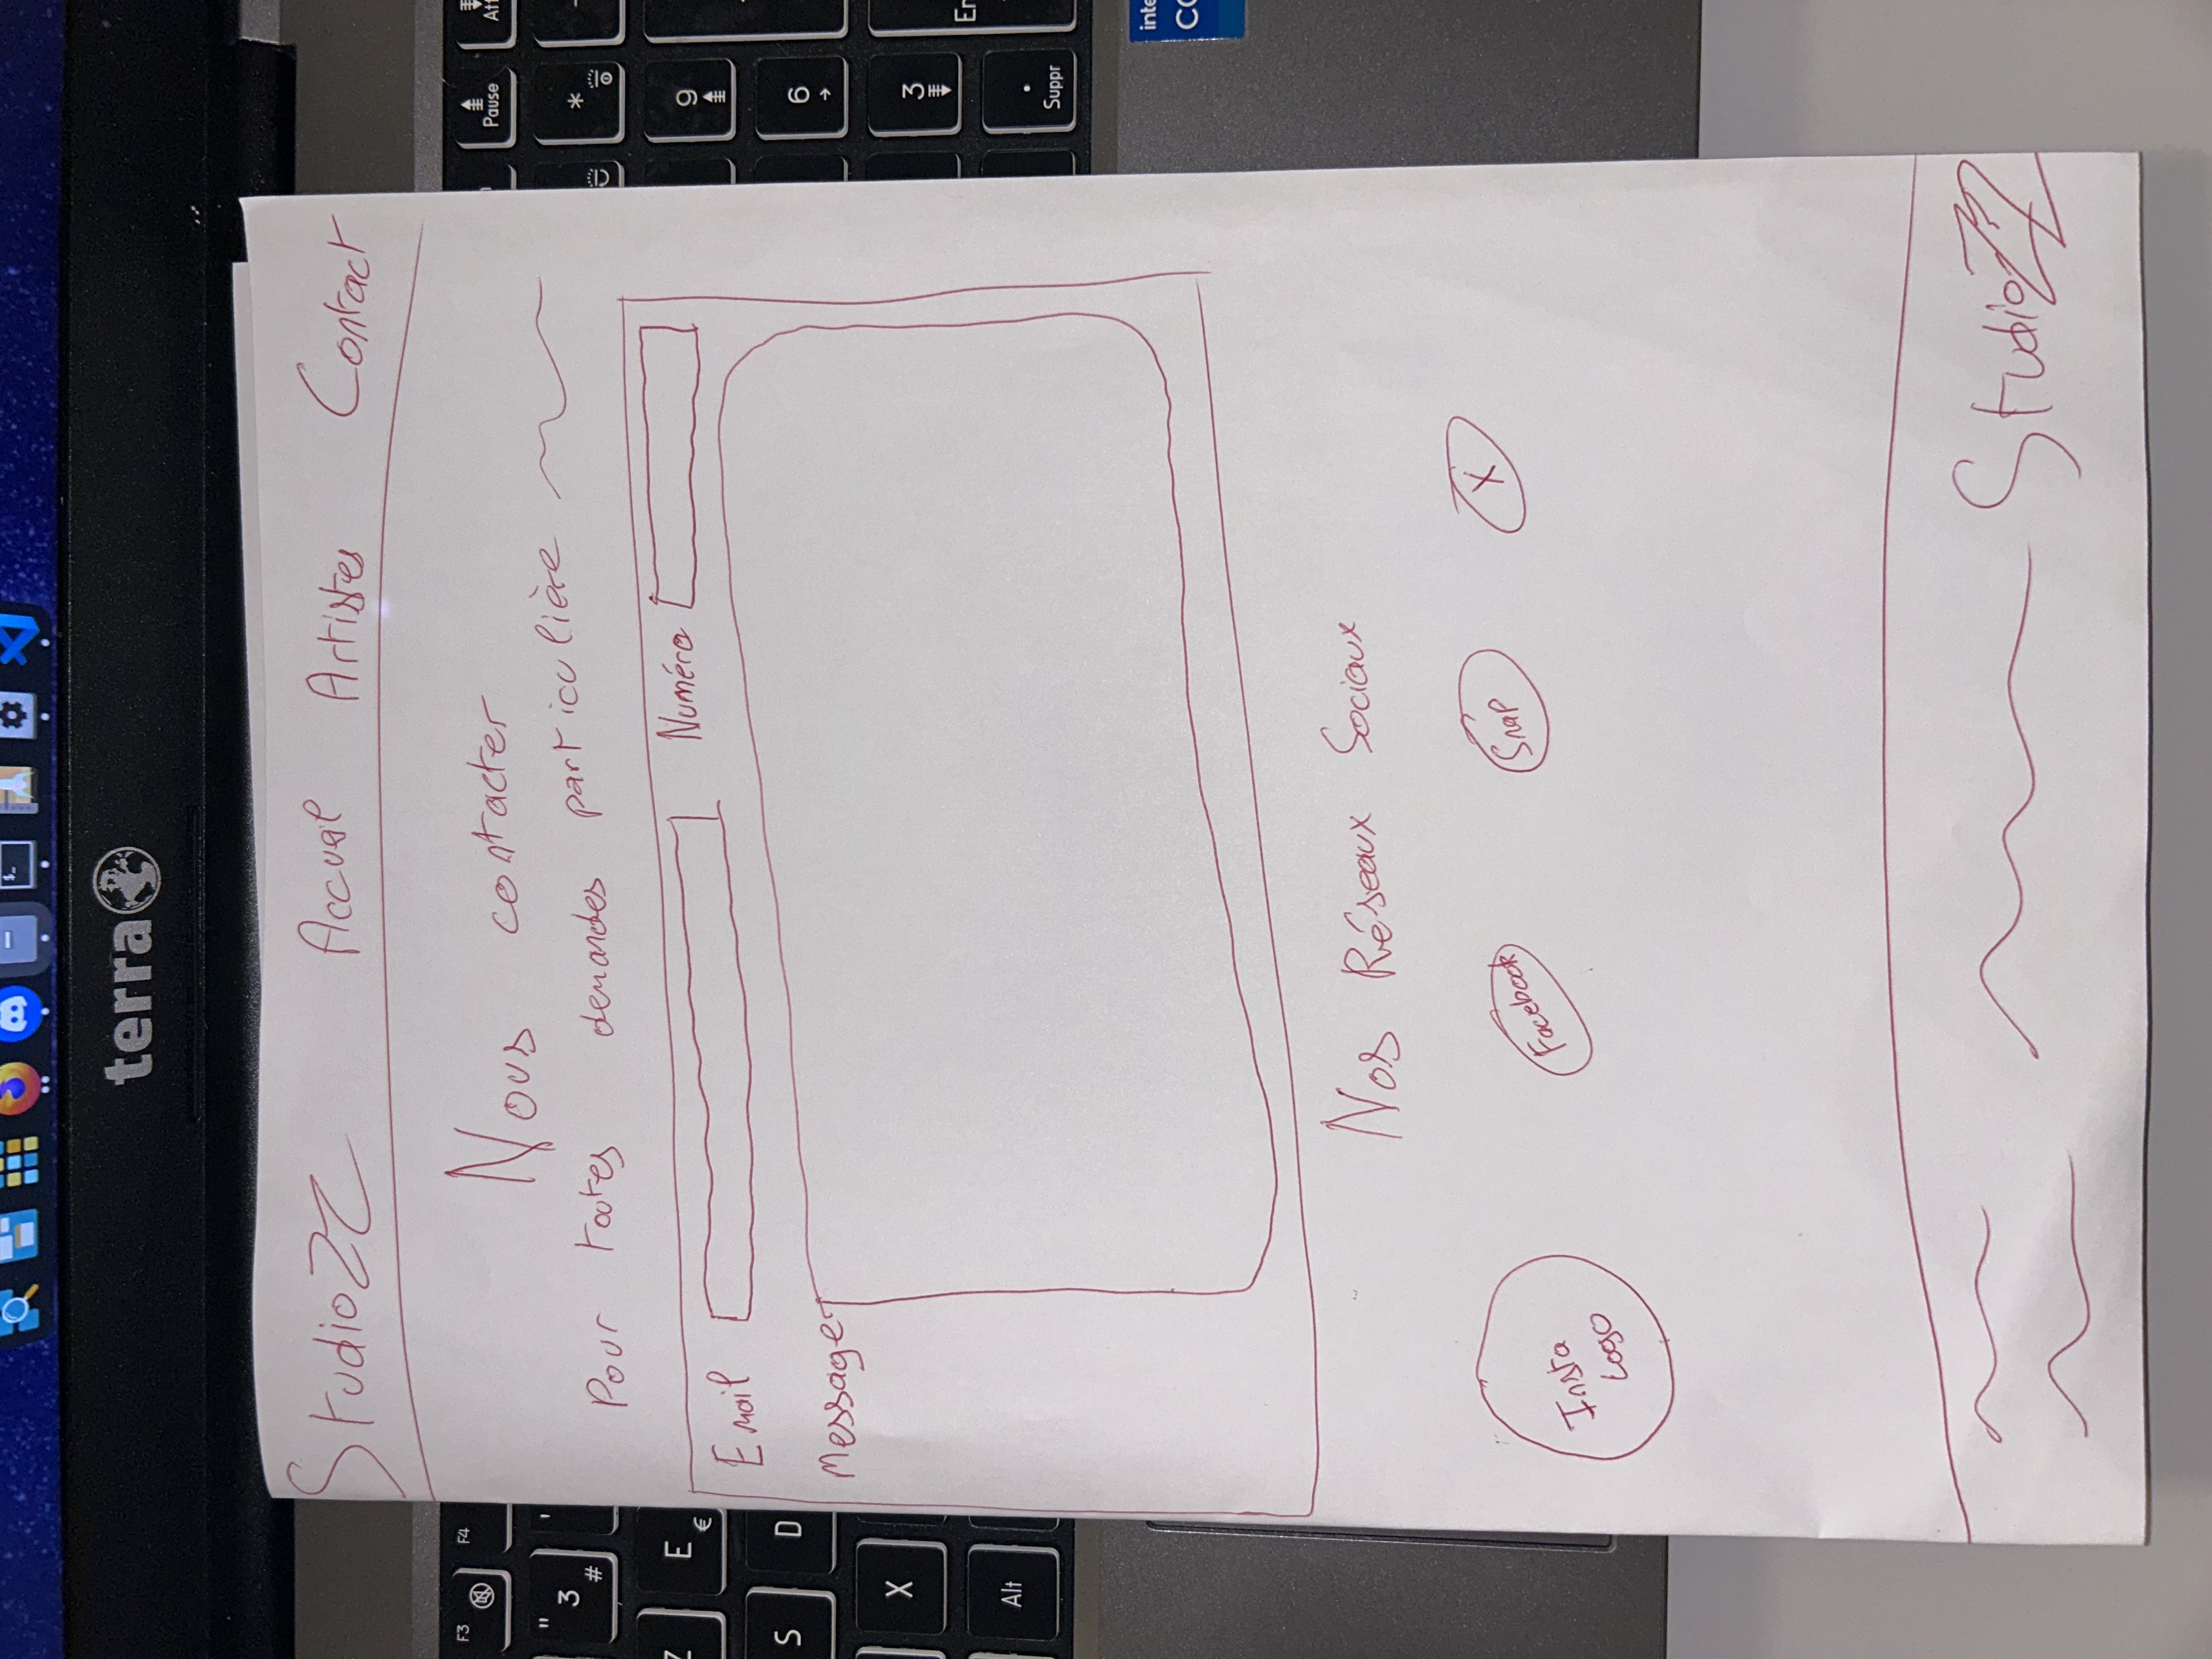 StudioZZ Accueil Artistes Contact
Nous contacter
Pour toutes demandes particulière
Email Numéro
Message
Nos Réseaux Sociaux
Insta Logo
Facebook
Snap
X
StudioZZ
terra
Pause
*
9
6
3
.
Suppr
F3
F4
"
3
#
E
€
D
S
X
Alt